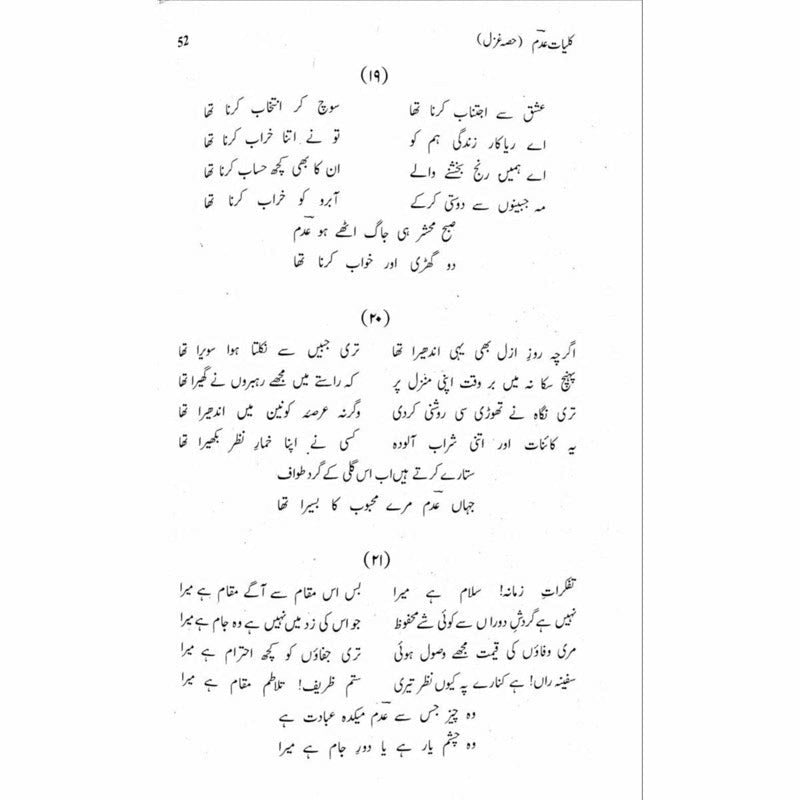 کلیات عدم (حصہ غزل) 52
(۱۹)
عشق سے اجتناب کرنا تھا سوچ کر انتخاب کرنا تھا
اے ریاکار زندگی ہم کو تو نے اتنا خراب کرنا تھا
اے ہمیں رنج بخشنے والے ان کا بھی کچھ حساب کرنا تھا
مہ جبینوں سے دوستی کرکے آبرو کو خراب کرنا تھا
صبح محشر ہی جاگ اٹھے ہو عدم
دو گھڑی اور خواب کرنا تھا
(۲۰)
اگرچہ روزِ ازل بھی یہی اندھیرا تھا تری جبیں سے نکلتا ہوا سویرا تھا
پہنچ سکا نہ میں بر وقت اپنی منزل پر کہ راستے میں مجھے رہبروں نے گھیرا تھا
تری نگاہ نے تھوڑی سی روشنی کردی وگرنہ عرصۂ کونین میں اندھیرا تھا
یہ کائنات اور اتنی شراب آلودہ کسی نے اپنا خمارِ نظر بکھیرا تھا
ستارے کرتے ہیں اب اس گلی کے گرد طواف
جہاں عدم مرے محبوب کا بسیرا تھا
(۲۱)
تفکراتِ زمانہ! سلام ہے میرا بس اس مقام سے آگے مقام ہے میرا
نہیں ہے گردشِ دوراں سے کوئی شے محفوظ جو اس کی زد میں نہیں ہے وہ جام ہے میرا
مری وفاؤں کی قیمت مجھے وصول ہوئی تری جفاؤں کو کچھ احترام ہے میرا
سفینہ راں! ہے کنارے پہ کیوں نظر تیری ستم ظریف! تلاطم مقام ہے میرا
وہ چیز جس سے عدم میکدہ عبادت ہے
وہ چشمِ یار ہے یا دورِ جام ہے میرا